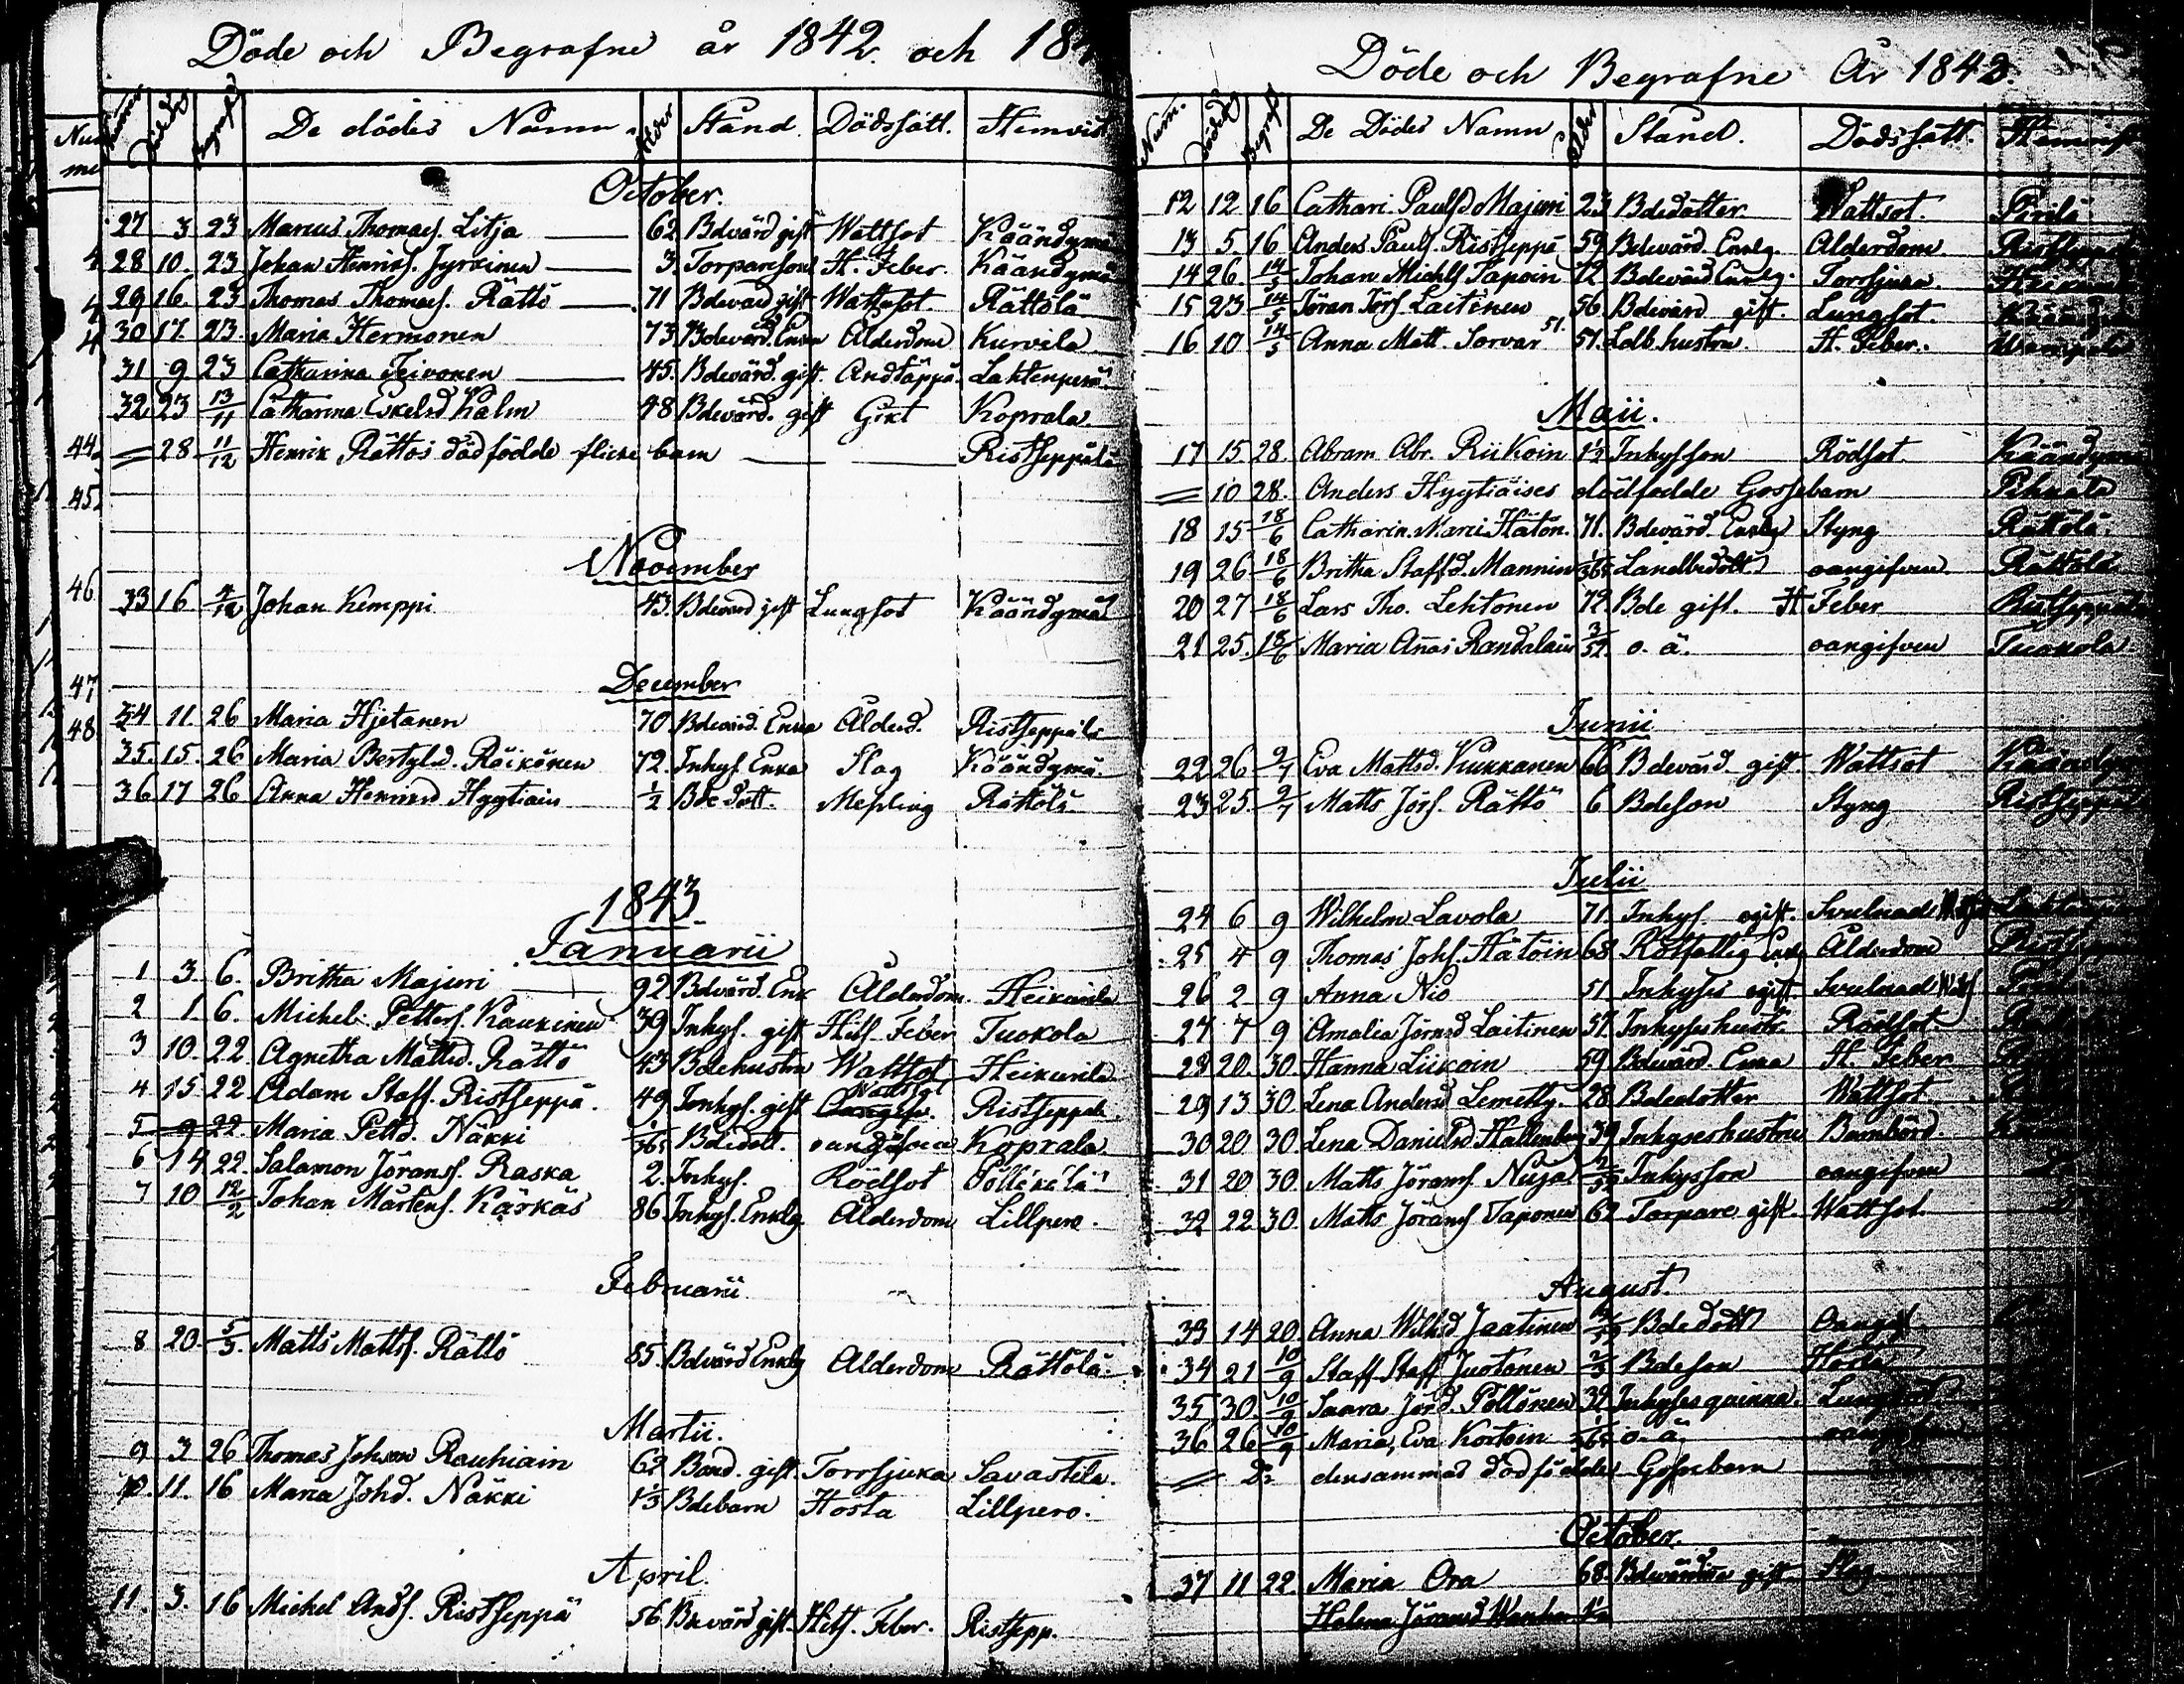 Döde och Begrafne år 1842. och 18
Numm Död Begrafd De dödes Namn. Ålder Stånd. Dödssätt. Hemvist
October.
27 3 23 Marcus Thomass. Litja 62 Bdevärd gift Wattsot Käändymä
28 10. 23 Johan Henrics. Jyrkinen 3. Torpareson H. Feber. Käändymä
29 16. 23 Thomas Thomass. Rättö 71 Bdevärd gift Wattusot. Rättölä
30 17. 23. Maria Hermonen 73. Bdevärd. Enka Ålderdom Kurvila
31 9 23 Catharina Teivonen 45. Bdevärd. gift. Andtäppa. Lahtenperä
32 23 13/11 Catharina Eskelsd Kalm 48 Bdevärd. gift Gikt Koprala
= 28 11/12 Henrik Rättös dödfödde flicke barn Ristseppälä
November
33 16 4/12 Johan Kemppi 43. Bdevärd gift Lungsot Käändymä
December
34 11. 26 Maria Hjetanen 70 Bdevärd. Enka Ålderd. Ristseppälä
35. 15. 26 Maria Bertylsd. Räikönen 72. Inhys. Enka Slag Käändymä.
36 17 26 Anna Henricsd Hyytiäin 1/2 Bde dott. Messling Rättölä
1843
Januarii
1 3. 6. Britha Majuri 92 Bdevärd. Enk Ålderdom. Heikurila
2 1. 6. Michel Petters. Kaukinen 39 Inhys. gift Hits. Feber Tuokola
3 10. 22. Agnetha Mattsd. Rättö 43 Bdehustru Wattsot Heikurila
4 15 22. Adam Staff. Ristseppä. 49 Inhys. gift Wattsot Ristseppälä.
5 9 22. Maria Pettd. Näkki 1/365 Bdedott. oangifven Koprala
6 14 22. Salamon Jöranss. Raska 2. Inhys. Rödsot Pöllölä
7 10 12/2 Johan Mårtens. Kärkäs 86 Inhys. Enklg Ålderdom Lillpero.
Februarii
8 20. 5/3. Matts Matts. Rättö 85. Bdevärd Enklg Ålderdom Rättölä
Martii.
9 3 26 Thomas Johsson Rauhiain 62 Bond. gift. Torrsjuka Savastila.
10. 11. 16 Maria Johd. Näkki 1/3 Bdebarn Hosta Lillpero.
April.
11. 3. 16 Michel Ands. Ristseppä 56 Bdevärd gift. Hits. Feber. Ristsepp.
Döde och Begrafne År 1843.
Num. Död Begrafd De Dödes Namn Ålder Stånd. Dödssätt.
12 12 16 Cathari. Paulsd Majuri 23 Bdedotter Wattsot. Perilä
13 5 16 Anders Pauls. Ristseppä 59 Bdevärd. Enklg. Ålderdom. Ristseppälä
14 26. 14/5 Johan Michls Tapoin 72. Bdevärd Enklg. Torrsjuka.
15 23 14/5 Jöran Jörs. Laitinen 56. Bdevärd gift. Lungsot.
16 10 14/5 Anna Matt. Sorvar 51. 51. Ldb. hustru. H. Feber.
Maii.
17 15 28. Abram Abr. Riikoin 1 1/2 Inhysson Rödsot. Käändymä
= 10 28. Anders Hyytiäises dödfödde Gossebarn
18 15 18/6 Catharin. Marci Hätön. 71. Bdevärd. Enklg Styng Rättölä.
19 26 18/6 Britha Staffd. Mannin 1/365 Landbodott oangifven. Rättölä
20 27 18/6 Lars Tho. Lehtonen 72. Bde gift. H Feber Ristseppälä
21 25. 18/6 Maria Annas Randalain 3/52. o. ä. oangifven Tuokola.
Junii
22 26 2/7 Eva Mattsd. Kukkanen 66 Bdevärd gift. Wattsot
23 25. 2/7 Matts Jörs. Rättö 6 Bdeson Styng
Julii
24 6 9 Wilhelm Lavola 71. Inhys. ogift. Svulnad
25 4 9 Thomas Johs. Hätöin 68 Rotfattig Enk Ålderdom
26 2 9 Anna Nio 51. Inhyses ogift. Svulnad
27 7 9 Amalia Jörnsd Laitinen 57. Inhyseshustr. Rödsot.
28 20. 30. Hanna Liikoin 59 Bdevärd. Enka H. Feber
29 13 30. Lena Andersd Lemetty. 28 Bdedotter Wattsot
30 20 30. Lena Danielsd Hallenberg 39 Inhyseshustru Barnbörd.
31 20 30. Matts Jörans. Nuija Inhysson oangifven
32 22 30. Matts Jörans Taponen 62 Torpare gift. Wattsot.
August.
33 14 20. Anna Wilhd Jaatinen Bdedott Oangif.
34 21 10/9 Staff Staff Juotonen 2/3 Bdeson Hosta
35 30. 10/9 Saara Jörd. Pöllönen 32 Inhyses quinna.
36 26 10/9 Maria, Eva Kortoin o. ä.
= Do densammas dödfödde Gossebarn
October.
37 11 22. Maria Ora 68. Bdevärdina gift Slag
Helena Jöransd